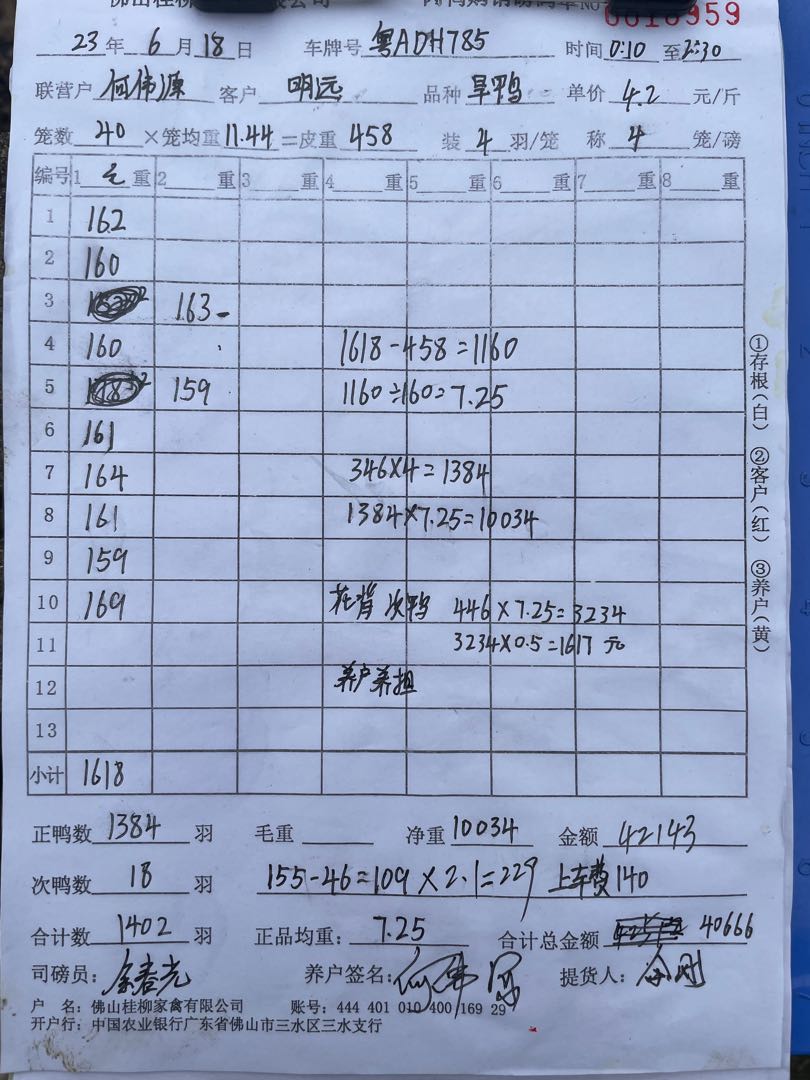 佛山桂柳
0018959
23年 6月 18日 车牌号 粤ADH785 时间 0:10 至 2:30
联营户 何伟源 客户 明远 品种 旱鸭 单价 4.2 元/斤
笼数 40 ×笼均重 11.44 =皮重 458 装 4 羽/笼 称 4 笼/磅
编号 1 毛 重 2 重 3 重 4 重 5 重 6 重 7 重 8 重
1 162
2 160
3 163-
4 160 1618-458=1160
5 159 1160÷160=7.25
6 161
7 164 346×4=1384
8 161 1384×7.25=10034
9 159
10 169 花背次鸭 446×7.25=3234
11 3234×0.5=1617元
12 养户养担
13
小计 1618
①存根(白) ②客户(红) ③养户(黄)
正鸭数 1384 羽 毛重 净重 10034 金额 42143
次鸭数 18 羽 155-46=109×2.1=229 上车费140
合计数 1402 羽 正品均重: 7.25 合计总金额 40666
司磅员: 养户签名: 提货人:
户 名: 佛山桂柳家禽有限公司 账号: 444 401 010 400 169 29
开户行: 中国农业银行广东省佛山市三水区三水支行